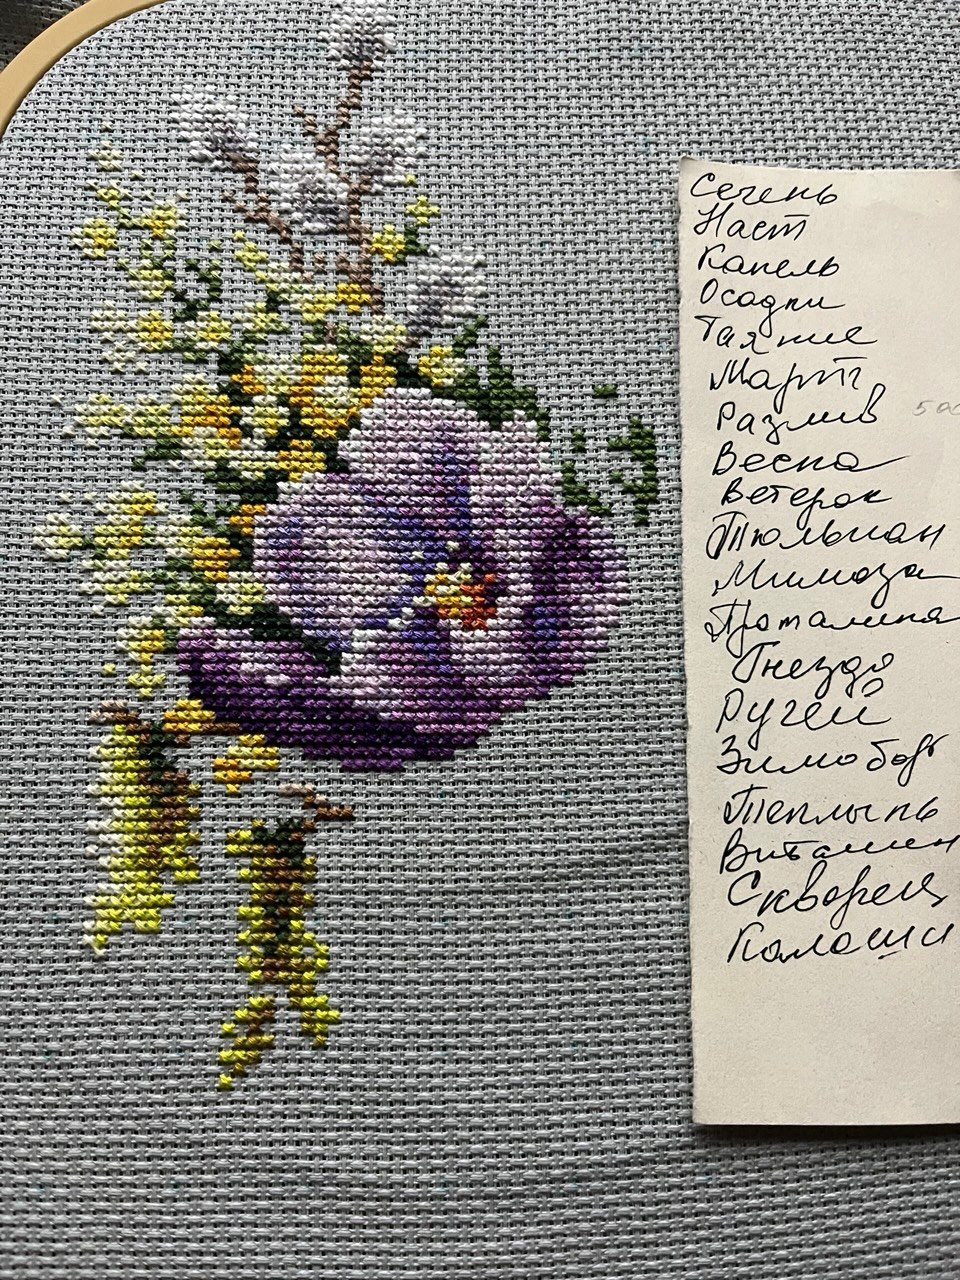 Сечень
Наст
Капель
Осадки
Таяние
Март
Разлив
Весна
Ветерок
Тюльпан
Мимоза
Проталина
Гнездо
Ручей
Зимобор
Теплынь
Витамин
Скворец
Калоши